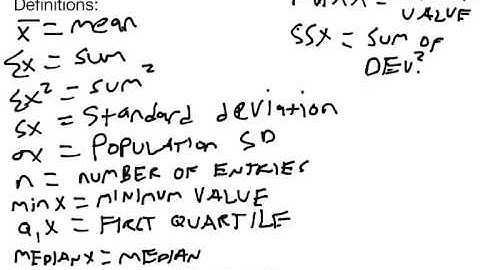 Definitions:
x̄ = mean
Σx = sum
Σx² = sum²
sx = Standard deviation
σx = POPULATION SD
n = NUMBER OF ENTRIES
minX = MINIMUM VALUE
Q₁X = FIRST QUARTILE
MEDIANX = MEDIAN
VALUE
SSX = SUM OF
DEV²